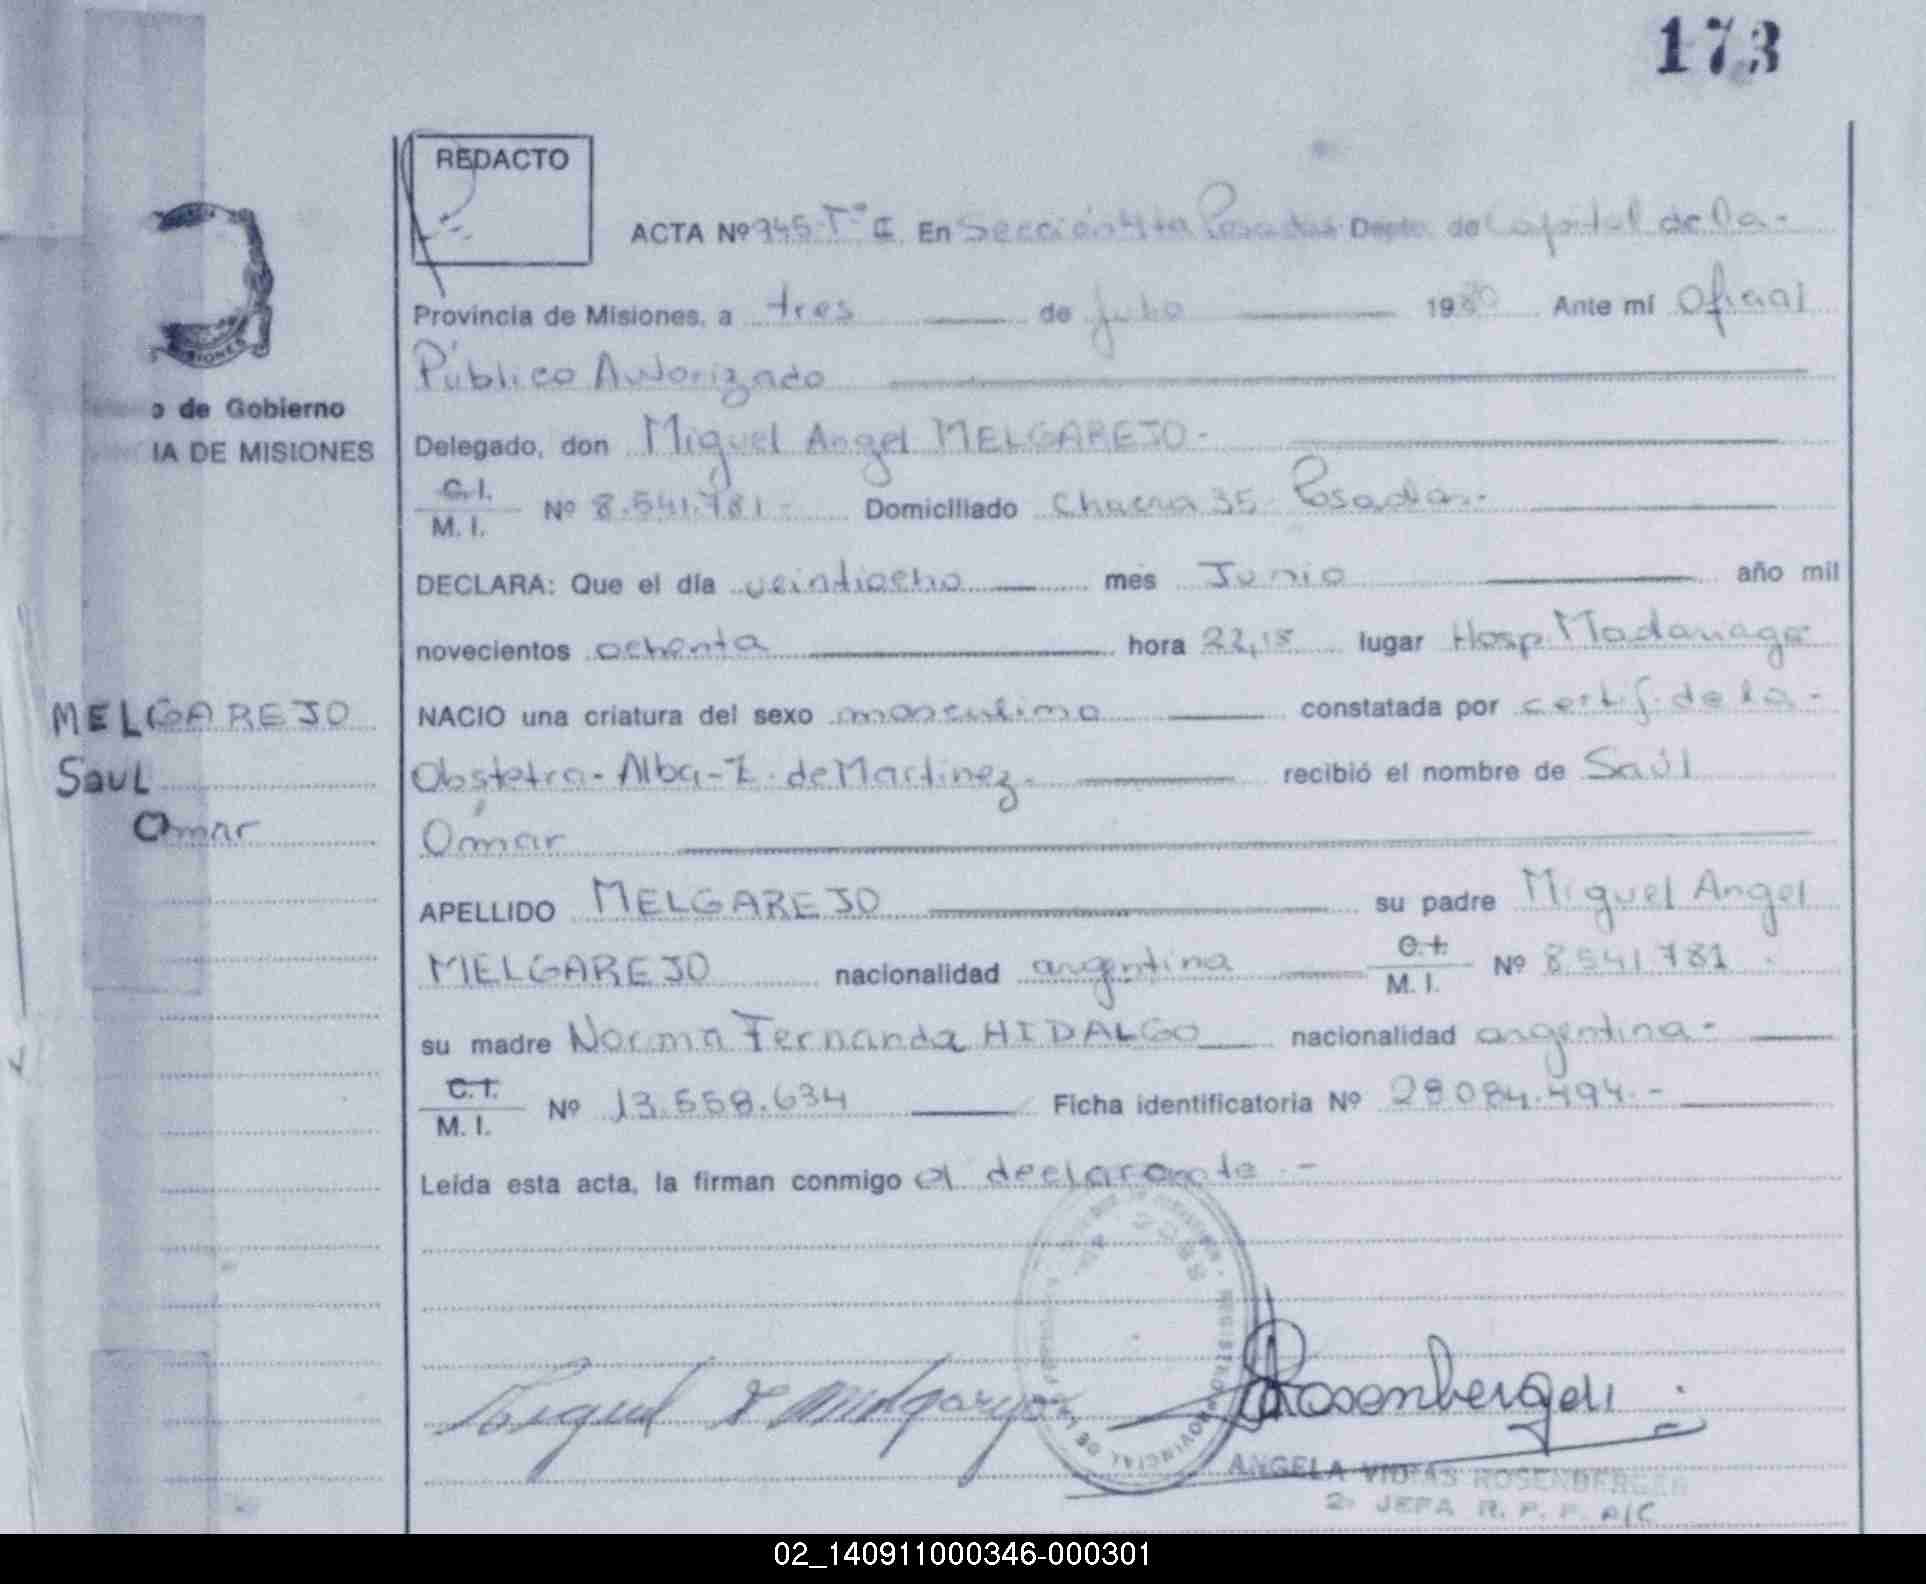 173
REDACTO
ACTA Nº 945-Tº I En Sección 4ta Posadas Depto. de Capital de la-
Provincia de Misiones, a tres de Julio 1980 Ante mí Oficial
Público Autorizado
o de Gobierno
IA DE MISIONES
Delegado, don Miguel Angel MELGAREJO-
C.I.
M.I. Nº 8.541.781- Domiciliado Chacra 35 Posadas.-
DECLARA: Que el día veintiocho mes Junio año mil
novecientos ochenta hora 22,15 lugar Hosp. Madariaga
MELGAREJO
Saul
Omar
NACIO una criatura del sexo masculino constatada por certif. de la-
Obstetra- Alba-Z. de Martinez- recibió el nombre de Saúl
Omar
APELLIDO MELGAREJO su padre Miguel Angel
MELGAREJO nacionalidad argentina C.I. M.I. Nº 8541781
su madre Norma Fernanda HIDALGO nacionalidad argentina-
C.I.
M.I. Nº 13.558.634 Ficha identificatoria Nº 28084.494.-
Leída esta acta, la firman conmigo el declarante.-
PROVINCIAL DE
Rosenberger
ANGELA ROSENBERGER
2º JEFA R. P. P. A/C
02_140911000346-000301